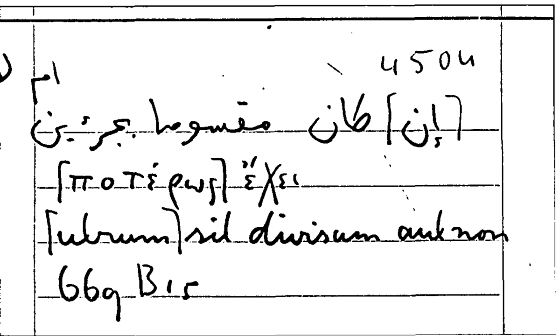 4504
ام
[إن] كان مقسوما بجزئين
[ποτέρως] ἔχει
[utrum] sit divisum aut non
66q B15